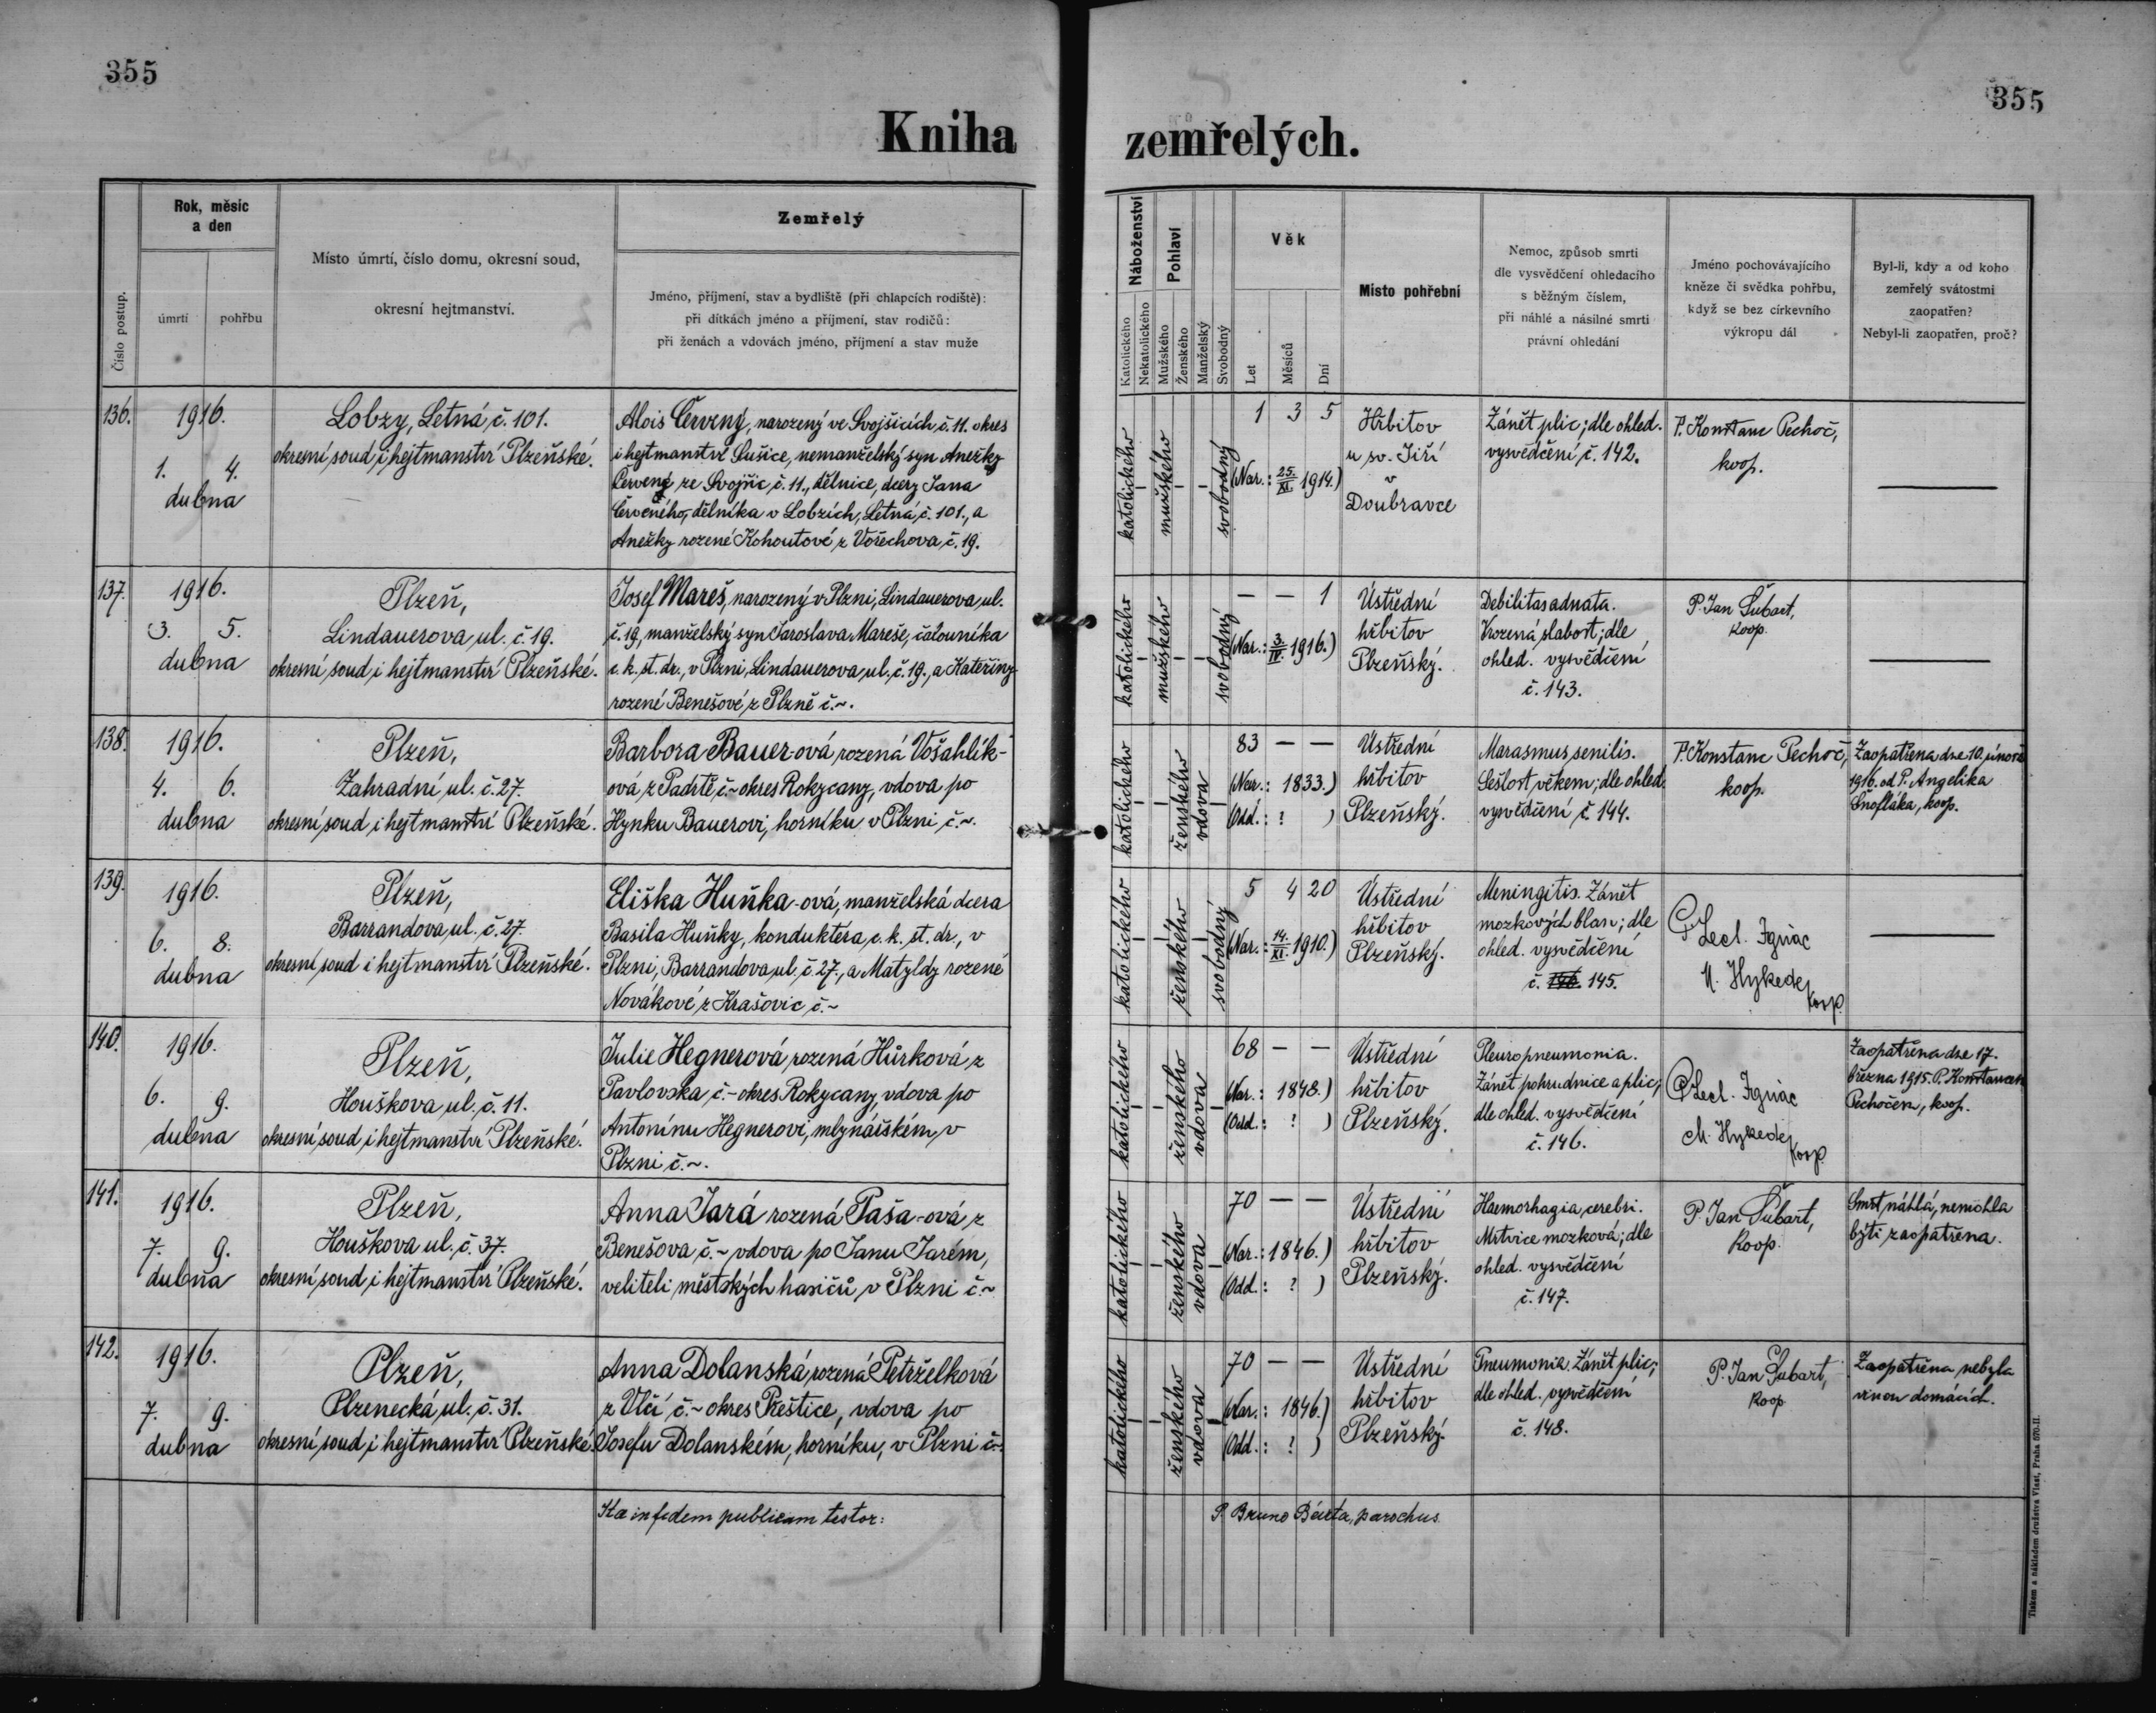 355
355
Kniha zemřelých.
Číslo postup.
Rok, měsíc
a den
úmrtí
pohřbu
Místo úmrtí, číslo domu, okresní soud,
okresní hejtmanství.
Zemřelý
Jméno, příjmení, stav a bydliště (při chlapcích rodiště):
při dítkách jméno a příjmení, stav rodičů:
při ženách a vdovách jméno, příjmení a stav muže
Náboženství
Katolického
Nekatolického
Pohlaví
Mužského
Ženského
Manželský
Svobodný
Věk
Let
Měsíců
Dní
Místo pohřební
Nemoc, způsob smrti
dle vysvědčení ohledacího
s běžným číslem,
při náhlé a násilné smrti
právní ohledání
Jméno pochovávajícího
kněze či svědka pohřbu,
když se bez církevního
výkropu dál
Byl-li, kdy a od koho
zemřelý svátostmi
zaopatřen?
Nebyl-li zaopatřen, proč?
136.
1916.
1. 4.
dubna
Lobzy, Letná č. 101.
okresní soud i hejtmanství Plzeňské.
Alois Červený, narozený ve Svojšicích č. 11. okres
i hejtmanství Sušice, nemanželský syn Anežky
Červené ze Svojšic č. 11., dělnice, dcery Jana
Červeného, dělníka v Lobzích, Letná č. 101., a
Anežky rozené Kohoutové z Vořechova č. 19.
katolického
mužského
svobodný
1 3 5
(Nar.: 25./XI. 1914.)
Hřbitov
u sv. Jiří
v
Doubravce
Zánět plic; dle ohled.
vysvědčení č. 142.
P. Konstanc Pechoč,
koop.
—
137.
1916.
3. 5.
dubna
Plzeň,
Lindauerova ul. č. 19.
okresní soud i hejtmanství Plzeňské.
Josef Mareš, narozený v Plzni, Lindauerova ul.
č. 19, manželský syn Jaroslava Mareše, čalouníka
c. k. st. dr., v Plzni, Lindauerova ul. č. 19., a Kateřiny
rozené Benešové z Plzně č. ~.
katolického
mužského
svobodný
— — 1
(Nar.: 3./IV. 1916.)
Ústřední
hřbitov
Plzeňský.
Debilitas adnata.
Vrozená slabost; dle
ohled. vysvědčení
č. 143.
P. Jan Šubart,
koop.
—
138.
1916.
4. 6.
dubna
Plzeň,
Zahradní ul. č. 27.
okresní soud i hejtmanství Plzeňské.
Barbora Bauer-ová rozená Vošahlík-
ová z Padrtě č. ~ okres Rokycany, vdova po
Hynku Bauerovi, horníku v Plzni č. ~.
katolického
ženského
vdova
83 — —
(Nar.: 1833.)
(Odd.: ? )
Ústřední
hřbitov
Plzeňský.
Marasmus senilis.
Sešlost věkem; dle ohled.
vysvědčení č. 144.
P. Konstanc Pechoč,
koop.
Zaopatřena dne 10. února
1916. od P. Angelika
Šnofláka, koop.
139.
1916.
6. 8.
dubna
Plzeň,
Barrandova ul. č. 27.
okresní soud i hejtmanství Plzeňské.
Eliška Huňka-ová, manželská dcera
Basila Huňky, konduktéra c. k. st. dr., v
Plzni, Barrandova ul. č. 27., a Matyldy rozené
Novákové z Krašovic č. ~
katolického
ženského
svobodný
5 4 20
(Nar.: 14./XI. 1910.)
Ústřední
hřbitov
Plzeňský.
Meningitis. Zánět
mozkových blan; dle
ohled. vysvědčení
č. 146. 145.
Ignác
M. Hykeděj
koop.
—
140.
1916.
6. 9.
dubna
Plzeň,
Houškova ul. č. 11.
okresní soud i hejtmanství Plzeňské.
Julie Hegnerová rozená Hůrková z
Pavlovska č. ~ okres Rokycany, vdova po
Antonínu Hegnerovi, mlynářském, v
Plzni č. ~.
katolického
ženského
vdova
68 — —
(Nar.: 1848.)
(Odd.: ? )
Ústřední
hřbitov
Plzeňský.
Pleuropneumonia.
Zánět pohrudnice a plic;
dle ohled. vysvědčení
č. 146.
Ignác
M. Hykeděj
koop.
Zaopatřena dne 17.
března 1915. P. Konstancem
Pechočem, koop.
141.
1916.
7. 9.
dubna
Plzeň,
Houškova ul. č. 37.
okresní soud i hejtmanství Plzeňské.
Anna Jará rozená Paša-ová z
Benešova č. ~ vdova po Janu Jarém,
veliteli městských hasičů v Plzni č. ~
katolického
ženského
vdova
70 — —
(Nar.: 1846.)
(Odd.: ? )
Ústřední
hřbitov
Plzeňský.
Haemorhagia cerebri.
Mrtvice mozková; dle
ohled. vysvědčení
č. 147.
P. Jan Šubart,
koop.
Smrt náhlá, nemohla
býti zaopatřena.
142.
1916.
7. 9.
dubna
Plzeň,
Plzenecká ul. č. 31.
okresní soud i hejtmanství Plzeňské.
Anna Dolanská rozená Petrželková
z Vlčí č. ~ okres Přeštice, vdova po
Josefu Dolanském, horníku, v Plzni č. ~
katolického
ženského
vdova
70 — —
(Nar.: 1846.)
(Odd.: ? )
Ústřední
hřbitov
Plzeňský.
Pneumonia. Zánět plic;
dle ohled. vysvědčení
č. 148.
P. Jan Šubart,
koop.
Zaopatřena nebyla
vinou domácích.
Ita in fidem publicam testor:
P. Bruno Bárta, parochus.
Tiskem a nákladem družstva Vlast, Praha 570-II.